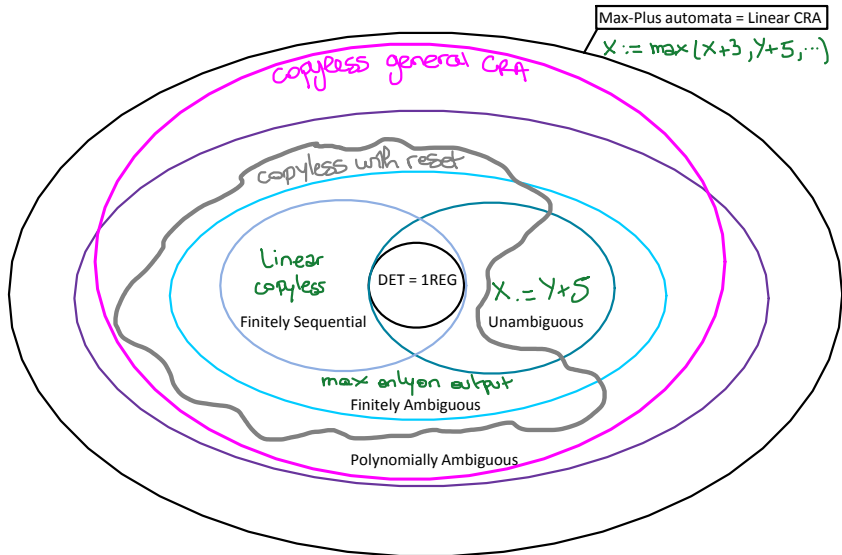 Max-Plus automata = Linear CRA
X := max(X+3, Y+5, ...)
copyless general CRA
copyless with reset
Linear
copyless
DET = 1REG
X := Y+5
Finitely Sequential
Unambiguous
max only on output
Finitely Ambiguous
Polynomially Ambiguous